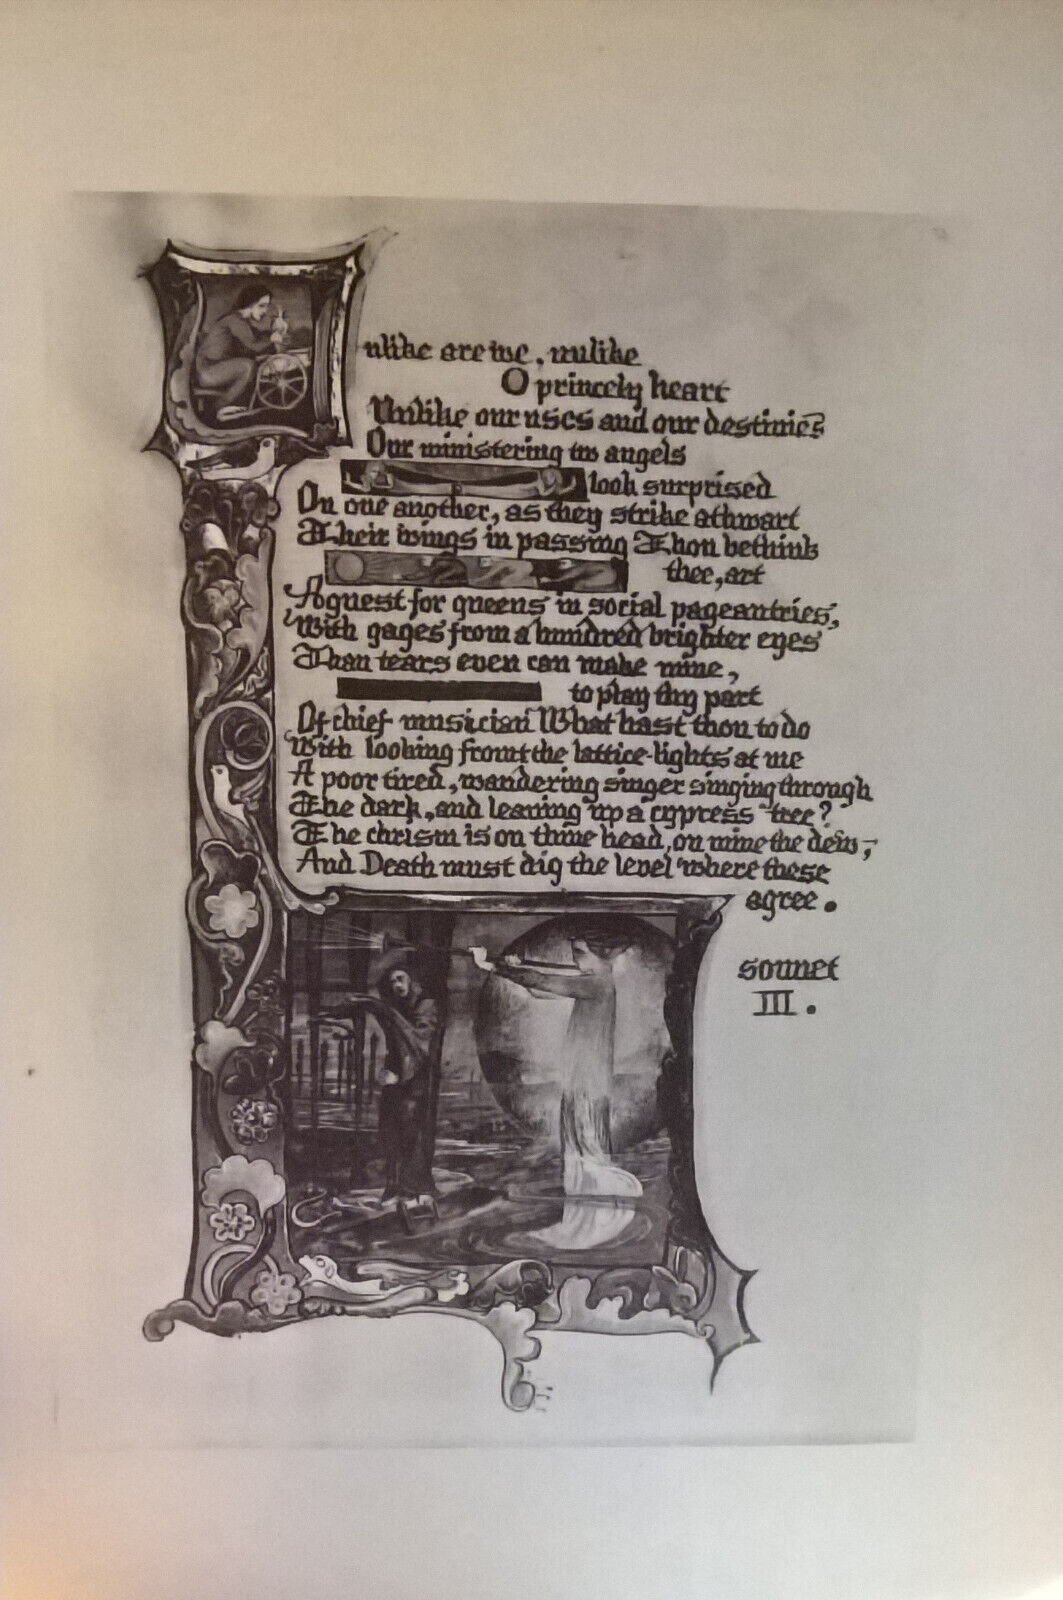 Unlike are we, unlike
O princely heart
Unlike our uses and our destinies
Our ministering two angels
look surprised
On one another, as they strike athwart
Their wings in passing Thou bethink
thee, art
A guest for queens in social pageantries,
With gages from a hundred brighter eyes
Than tears even can make mine,
to play thy part
Of chief musician What hast thou to do
With looking from the lattice-lights at me
A poor tired, wandering singer singing through
The dark, and leaning up a cypress tree?
The chrism is on thine head, on mine the dew,
And Death must dig the level where these
agree.
sonnet
III.